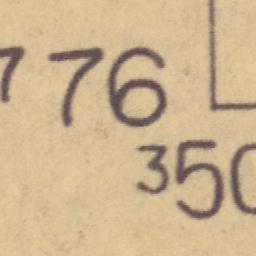 776
350